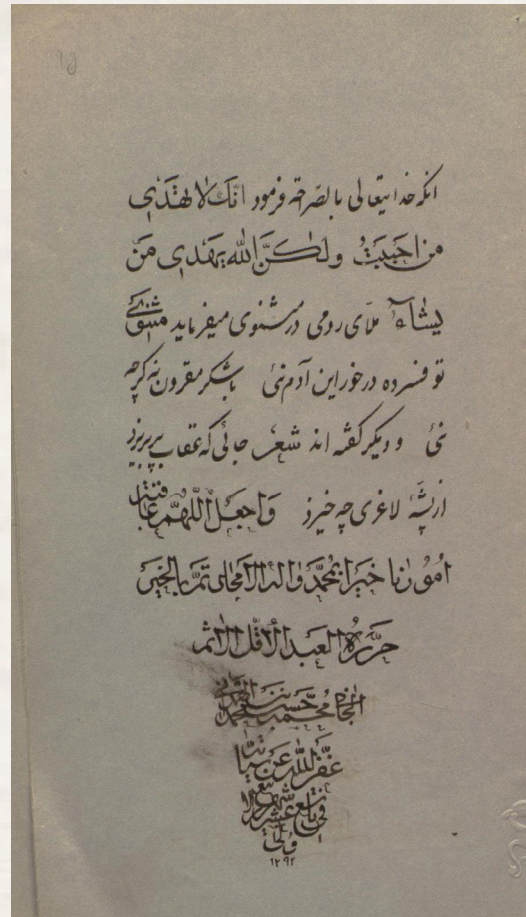 انکه خدایتعالی بالصراحه فرمود انّك لا تهدی
من احببت ولكنّ الله یهدی من
یشآء ملّای رومی در مثنوی میفرماید مثنوی
تو فسرده درخور این آدم نئی باشکر مقرون نه گرچه
نئی و دیگر گفته اند شعر جائی که عقاب پر بریزد
از پشّهٔ لاغری چه خیزد واجعل اللّهمّ عاقبة
امورنا خیرا بمحمّد واله الامجاد تمّت بالخیر
حرّره العبد الاقل الاثم
محمد حسن
غفر الله عن
فی
۱۲۹۲